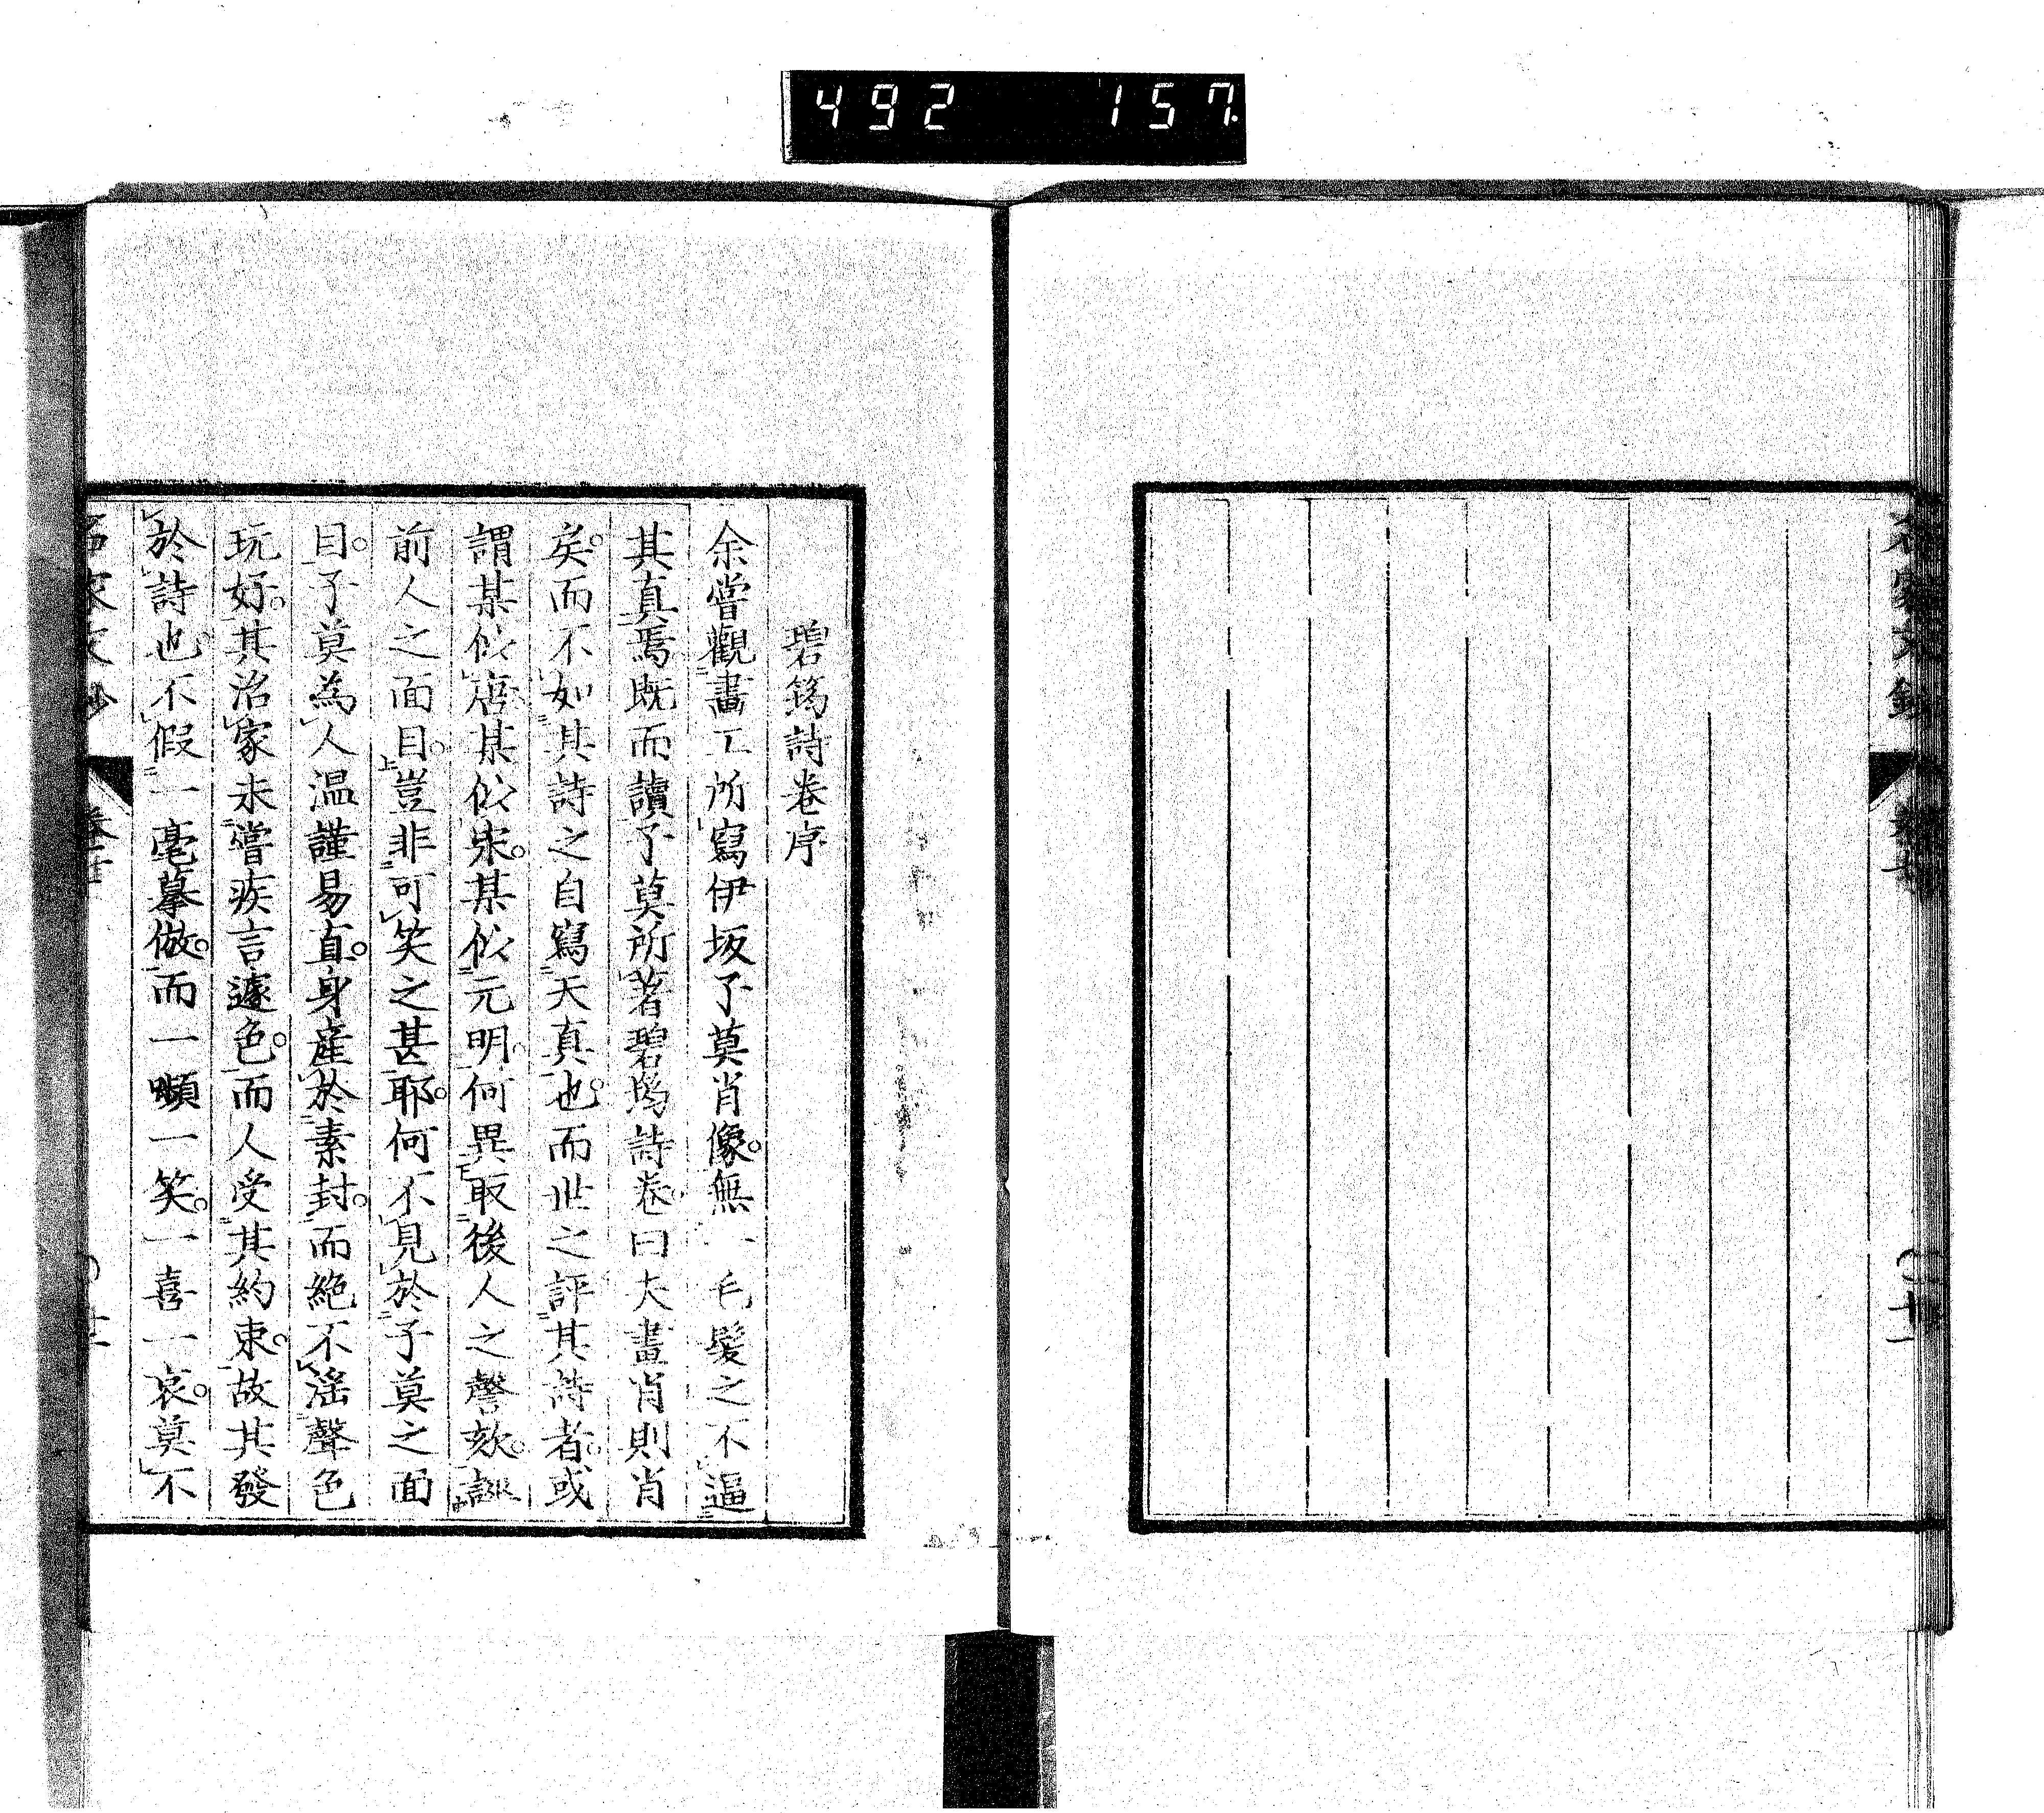 492 157
碧筠詩卷序
余嘗觀畫工所寫伊坂子莫肖像。無一毛髮之不逼
其真焉既而讀子莫所著碧筠詩卷。曰夫畫肖則肖
矣。而不如其詩之自寫天真也。而世之評其詩者。或
謂某似唐某似宋。某似元明。何異取後人之謦欬。誣
前人之面目。豈非可笑之甚耶。何不見於子莫之面
目。子莫為人温謹易直。身産於素封。而絶不淫聲色
玩好。其治家未嘗疾言遽色。而人受其約束。故其發
於詩也。不假一毫摹倣。而一嚬一笑。一喜一哀。莫不
名家文鈔